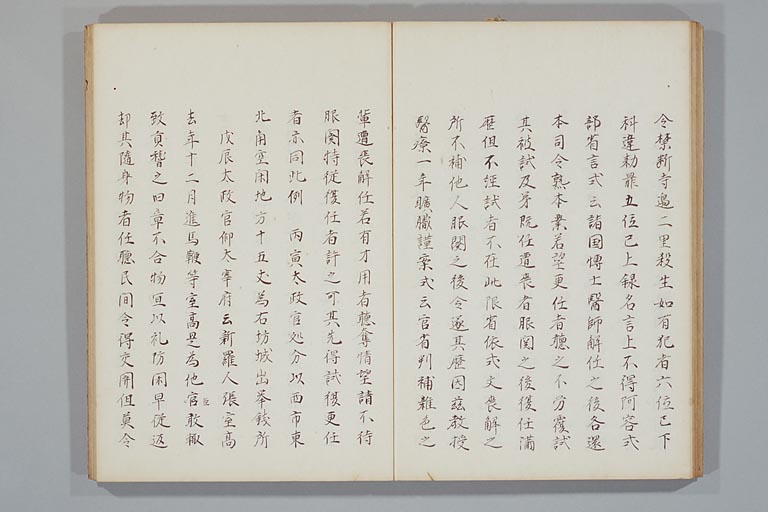 令禁断寺邊二里殺生如有犯者六位已下
科違勅罪五位已上録名言上不得阿容式
部省言式云諸国博士醫師解任之後各還
本司令熟本業若望更任者聴之不労覆試
其被試及第既任遭喪者服闋之後復任滿
歴但不經試者不在此限省依式文喪解之
所不補他人服闋之後令遂其歴因茲教授
醫療一年曠職謹案式云官省判補雜色之
輩遭喪解任若有才用者聴奪情望請不待
服闋特従復任者許之可其先得試復更任
者亦同此例 丙寅太政官処分以西市東
北角空閑地方十五丈為右坊城出挙銭所
戊辰太政官仰大宰府云新羅人張宝高
去年十二月進馬鞍等宝高是為他臣敢輙
致貢稽之旧章不合物宜以礼防閑早従返
却其隨身物者任聴民間令得交関但莫令